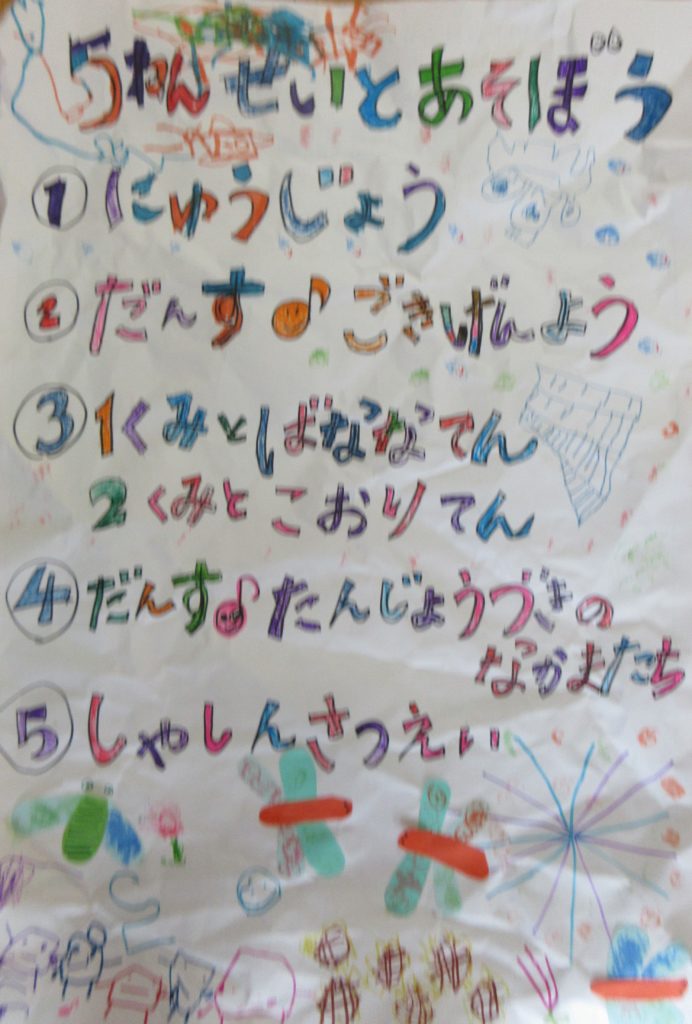 5ねんせいとあそぼう
① にゅうじょう
② だんす♪ ごきげんよう
③ 1くみと ばななてん
2くみと こおりてん
④ だんす♪ たんじょうづきの
なかまたち
⑤ しゃしんさつえい